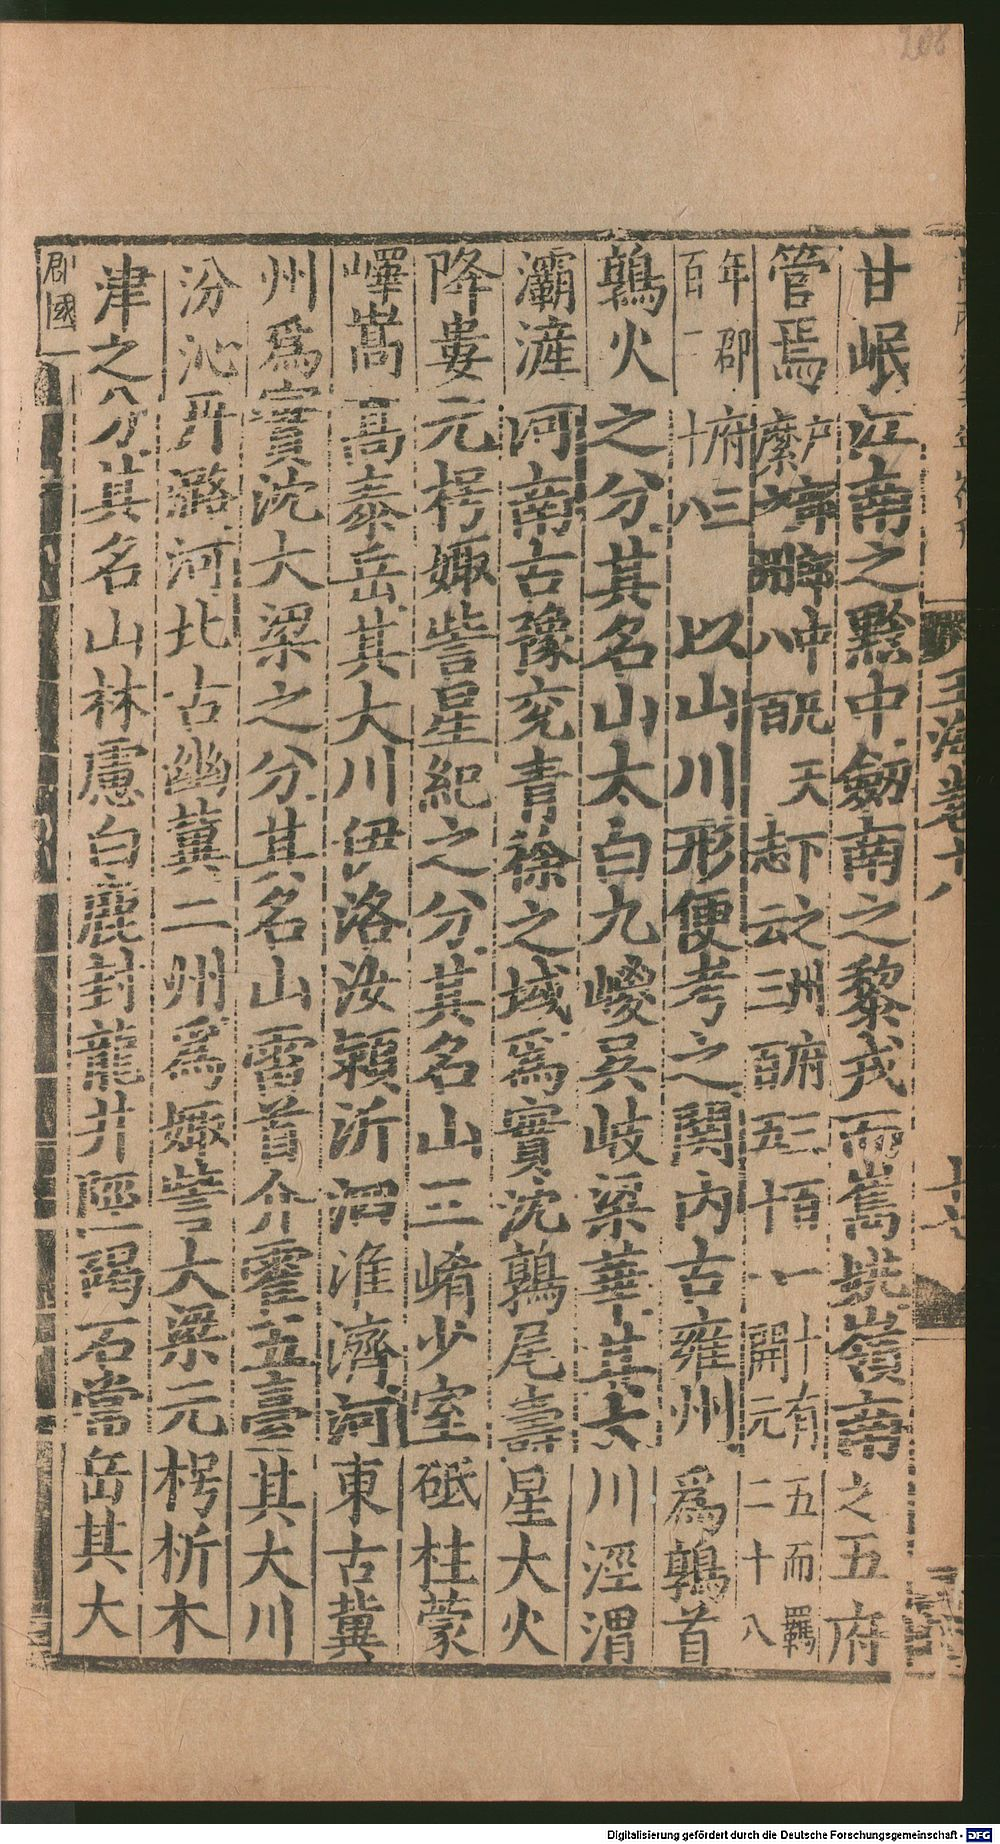 甘岷江南之黔中劒南之黎戎而嶲姚嶺南之五府
管焉
天下之州府三百一十有五而羈
八百 志云三百五十八 開元二十八
年郡府三
百二十八
以山川形便考之關内古雍州爲鶉首
鶉火之分其名山太白九嵕吳岐梁華其大川涇渭
灞滻河南古豫兖青徐之域爲實沈鶉尾壽星大火
降婁元枵娵訾星紀之分其名山三崤少室砥柱蒙
嶧嵩高泰岳其大川伊洛汝潁沂泗淮濟河東古冀
州爲實沈大梁之分其名山雷首介霍五臺其大川
汾沁丹潞河北古幽冀二州爲娵訾大梁元枵析木
津之分其名山林慮白鹿封龍井陘碣石常岳其大
郡國
玉海卷十八
十七
208
Digitalisierung gefördert durch die Deutsche Forschungsgemeinschaft - DFG